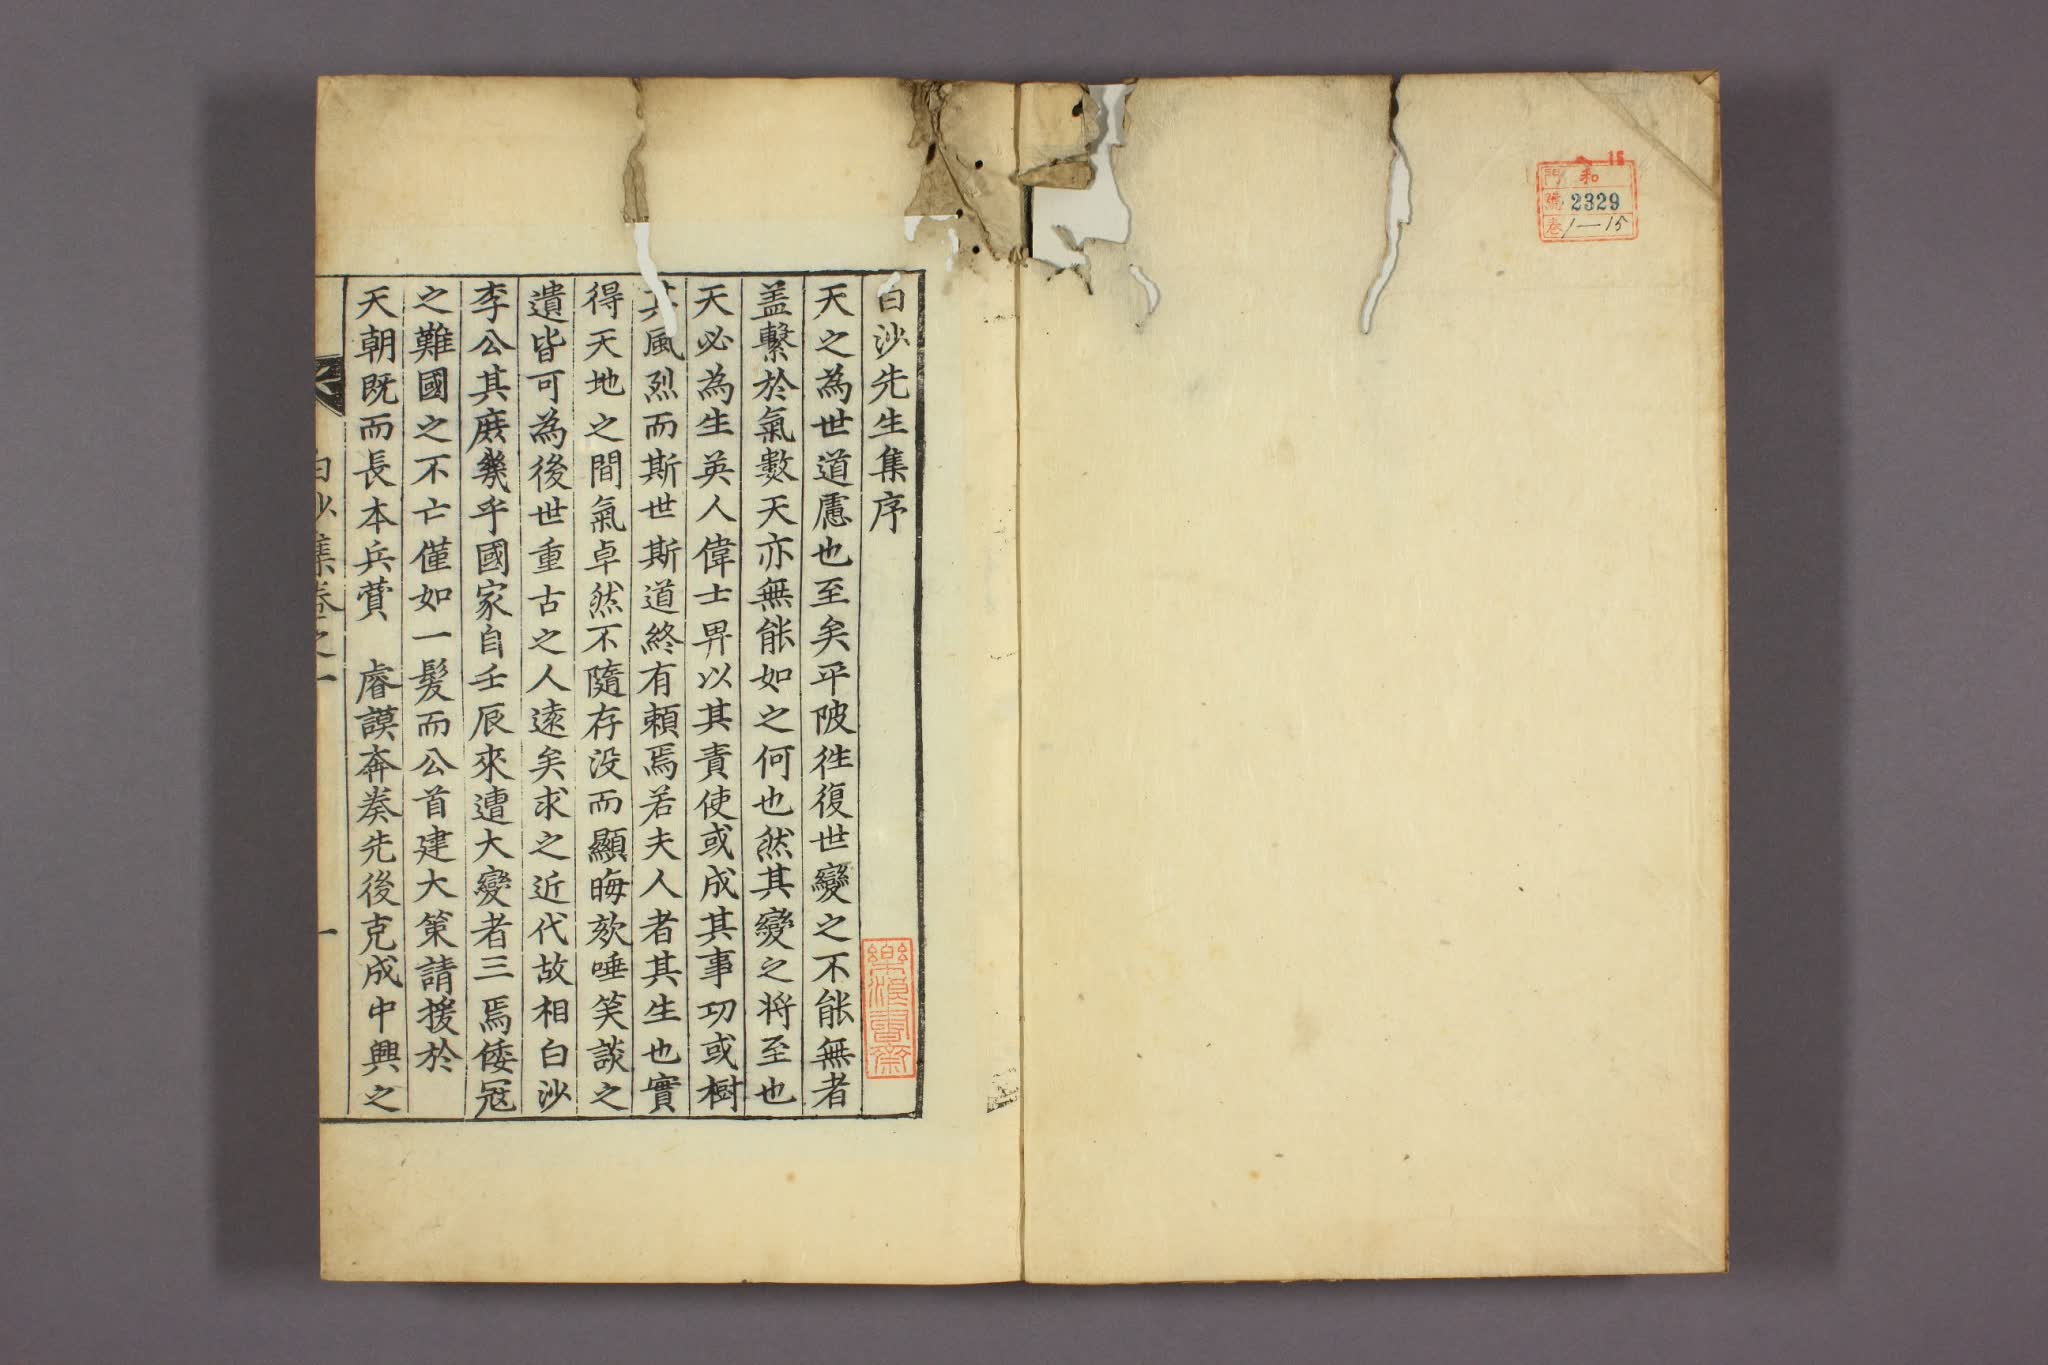 和
門
號 2329
卷 1—15
15
白沙先生集序
天之為世道慮也至矣平陂徃復世變之不能無者
盖繫於氣數天亦無能如之何也然其變之将至也
天必為生英人偉士畀以其責使或成其事功或樹
其風烈而斯世斯道終有頼焉若夫人者其生也實
得天地之間氣卓然不隨存没而顯晦欬唾笑談之
遺皆可為後世重古之人遠矣求之近代故相白沙
李公其庶幾乎國家自壬辰來遭大變者三焉倭冦
之難國之不亡僅如一髮而公首建大策請援於
天朝既而長本兵賛 睿謨奔奏先後克成中興之
白沙集卷之一
一
樂浪書齋